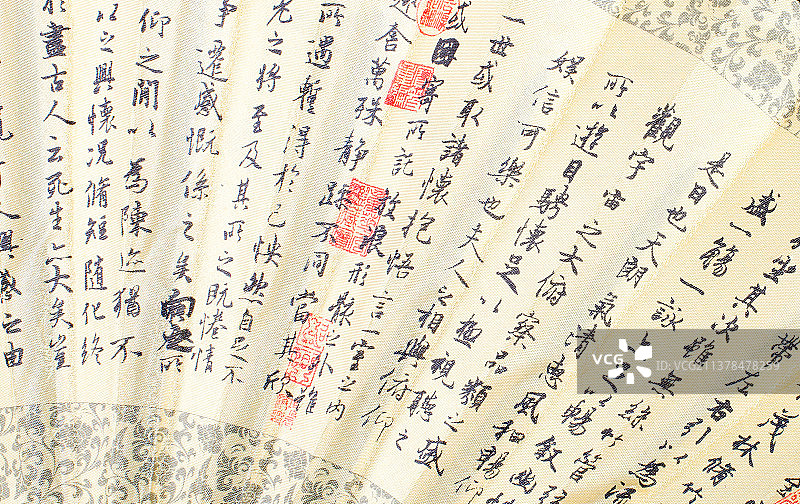 茂林
坐其次雖無絲竹管
盛一觴一詠
是日也天朗氣清惠風和暢仰
觀宇宙之大俯察品類之盛
所以遊目騁懷足以極視聽之
娛信可樂也夫人之相與俯仰
一世或取諸懷抱悟言一室之內
或因寄所託放浪形骸之外雖
舍萬殊靜躁不同當其欣
所遇暫得於己怏然自足不
老之將至及其所之既惓情
事遷感慨係之矣向之所
仰之閒以為陳迹猶不
以之興懷況脩短隨化終
於盡古人云死生亦大矣豈
人興感之由
VCG
VCG.COM/1378478299